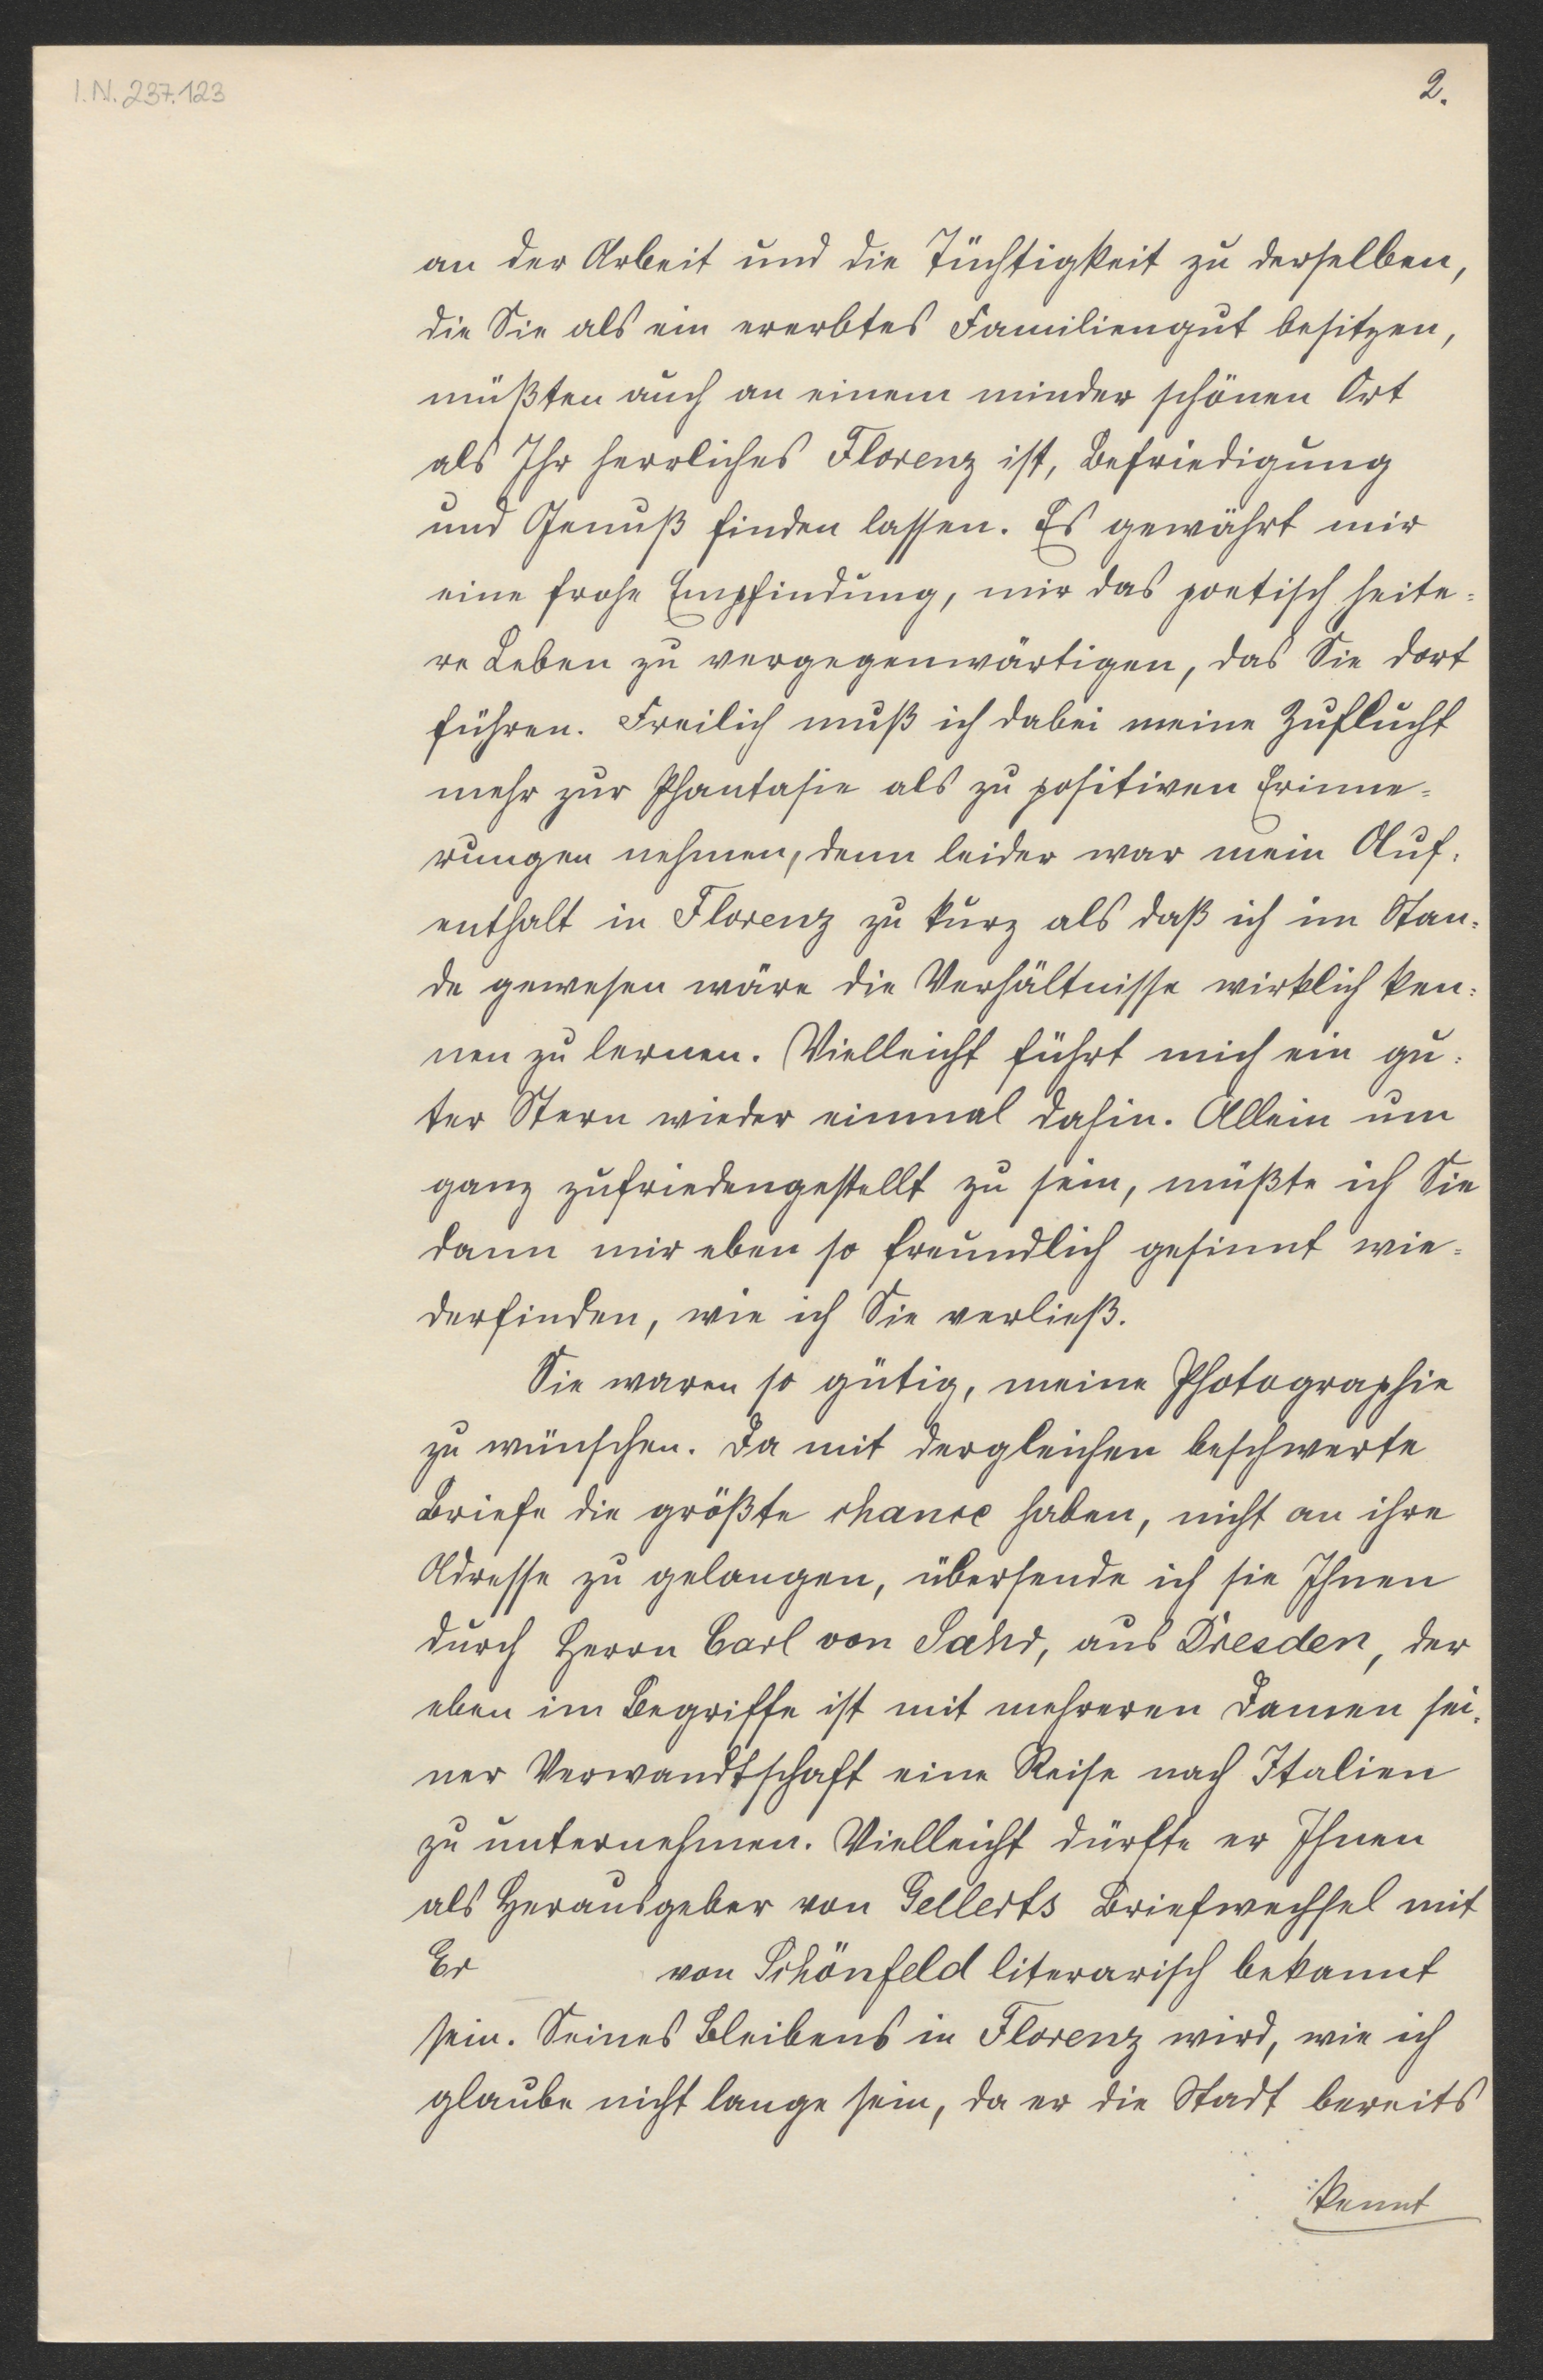 I.N. 237.123
2.
an der Arbeit und die Tüchtigkeit zu derselben,
die Sie als ein ererbtes Familiengut besitzen,
müßten auch an einem minder schönen Ort
als Ihr herrliches Florenz ist, Befriedigung
und Genuß finden lassen. Es gewährt mir
eine frohe Empfindung, mir das poetisch heite=
re Leben zu vergegenwärtigen, das Sie dort
führen. Freilich muß ich dabei meine Zuflucht
mehr zur Phantasie als zu positiven Erinne=
rungen nehmen, denn leider war mein Auf=
enthalt in Florenz zu kurz als daß ich im Stan=
de gewesen wäre die Verhältnisse wirklich ken=
nen zu lernen. Vielleicht führt mich ein gu=
ter Stern wieder einmal dahin. Allein um
ganz zufriedengestellt zu sein, müßte ich Sie
dann mir eben so freundlich gesinnt wie=
derfinden, wie ich Sie verließ.
Sie waren so gütig, meine Photographie
zu wünschen. Da mit dergleichen beschwerte
Briefe die größte chance haben, nicht an ihre
Adresse zu gelangen, übersende ich sie Ihnen
durch Herrn Carl von Sahr, aus Dresden, der
eben im Begriffe ist mit mehreren Damen sei=
ner Verwandtschaft eine Reise nach Italien
zu unternehmen. Vielleicht dürfte er Ihnen
als Herausgeber von Gellerts Briefwechsel mit
Er von Schönfeld literarisch bekannt
sein. Seines Bleibens in Florenz wird, wie ich
glaube nicht lange sein, da er die Stadt bereits
kennt